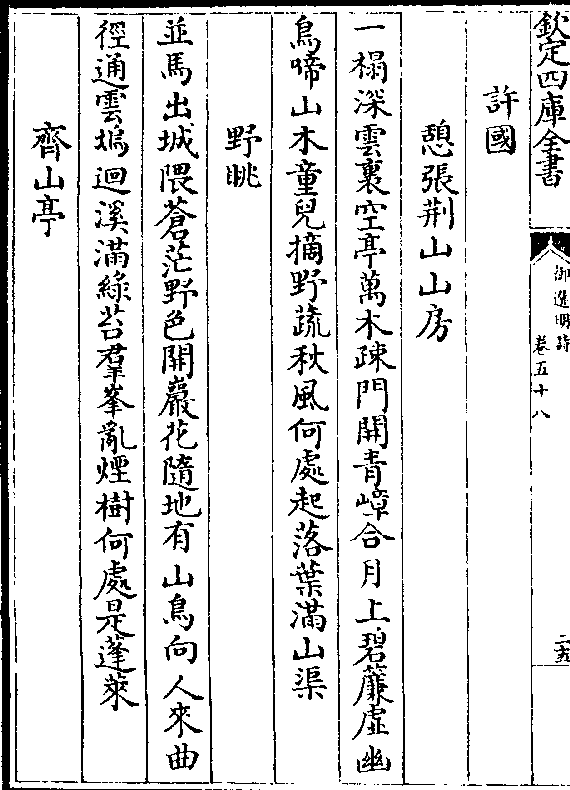 欽定四庫全書
御選明詩
卷五十八
二五
許國
憩張荆山山房
一榻深雲裏空亭萬木疎門開青嶂合月上碧簾虛幽
鳥啼山木童兒摘野蔬秋風何處起落葉滿山渠
野眺
並馬出城隈蒼茫野色開巖花隨地有山鳥向人來曲
徑通雲塢迴溪滿綠苔羣峯亂煙樹何處是蓬萊
齊山亭